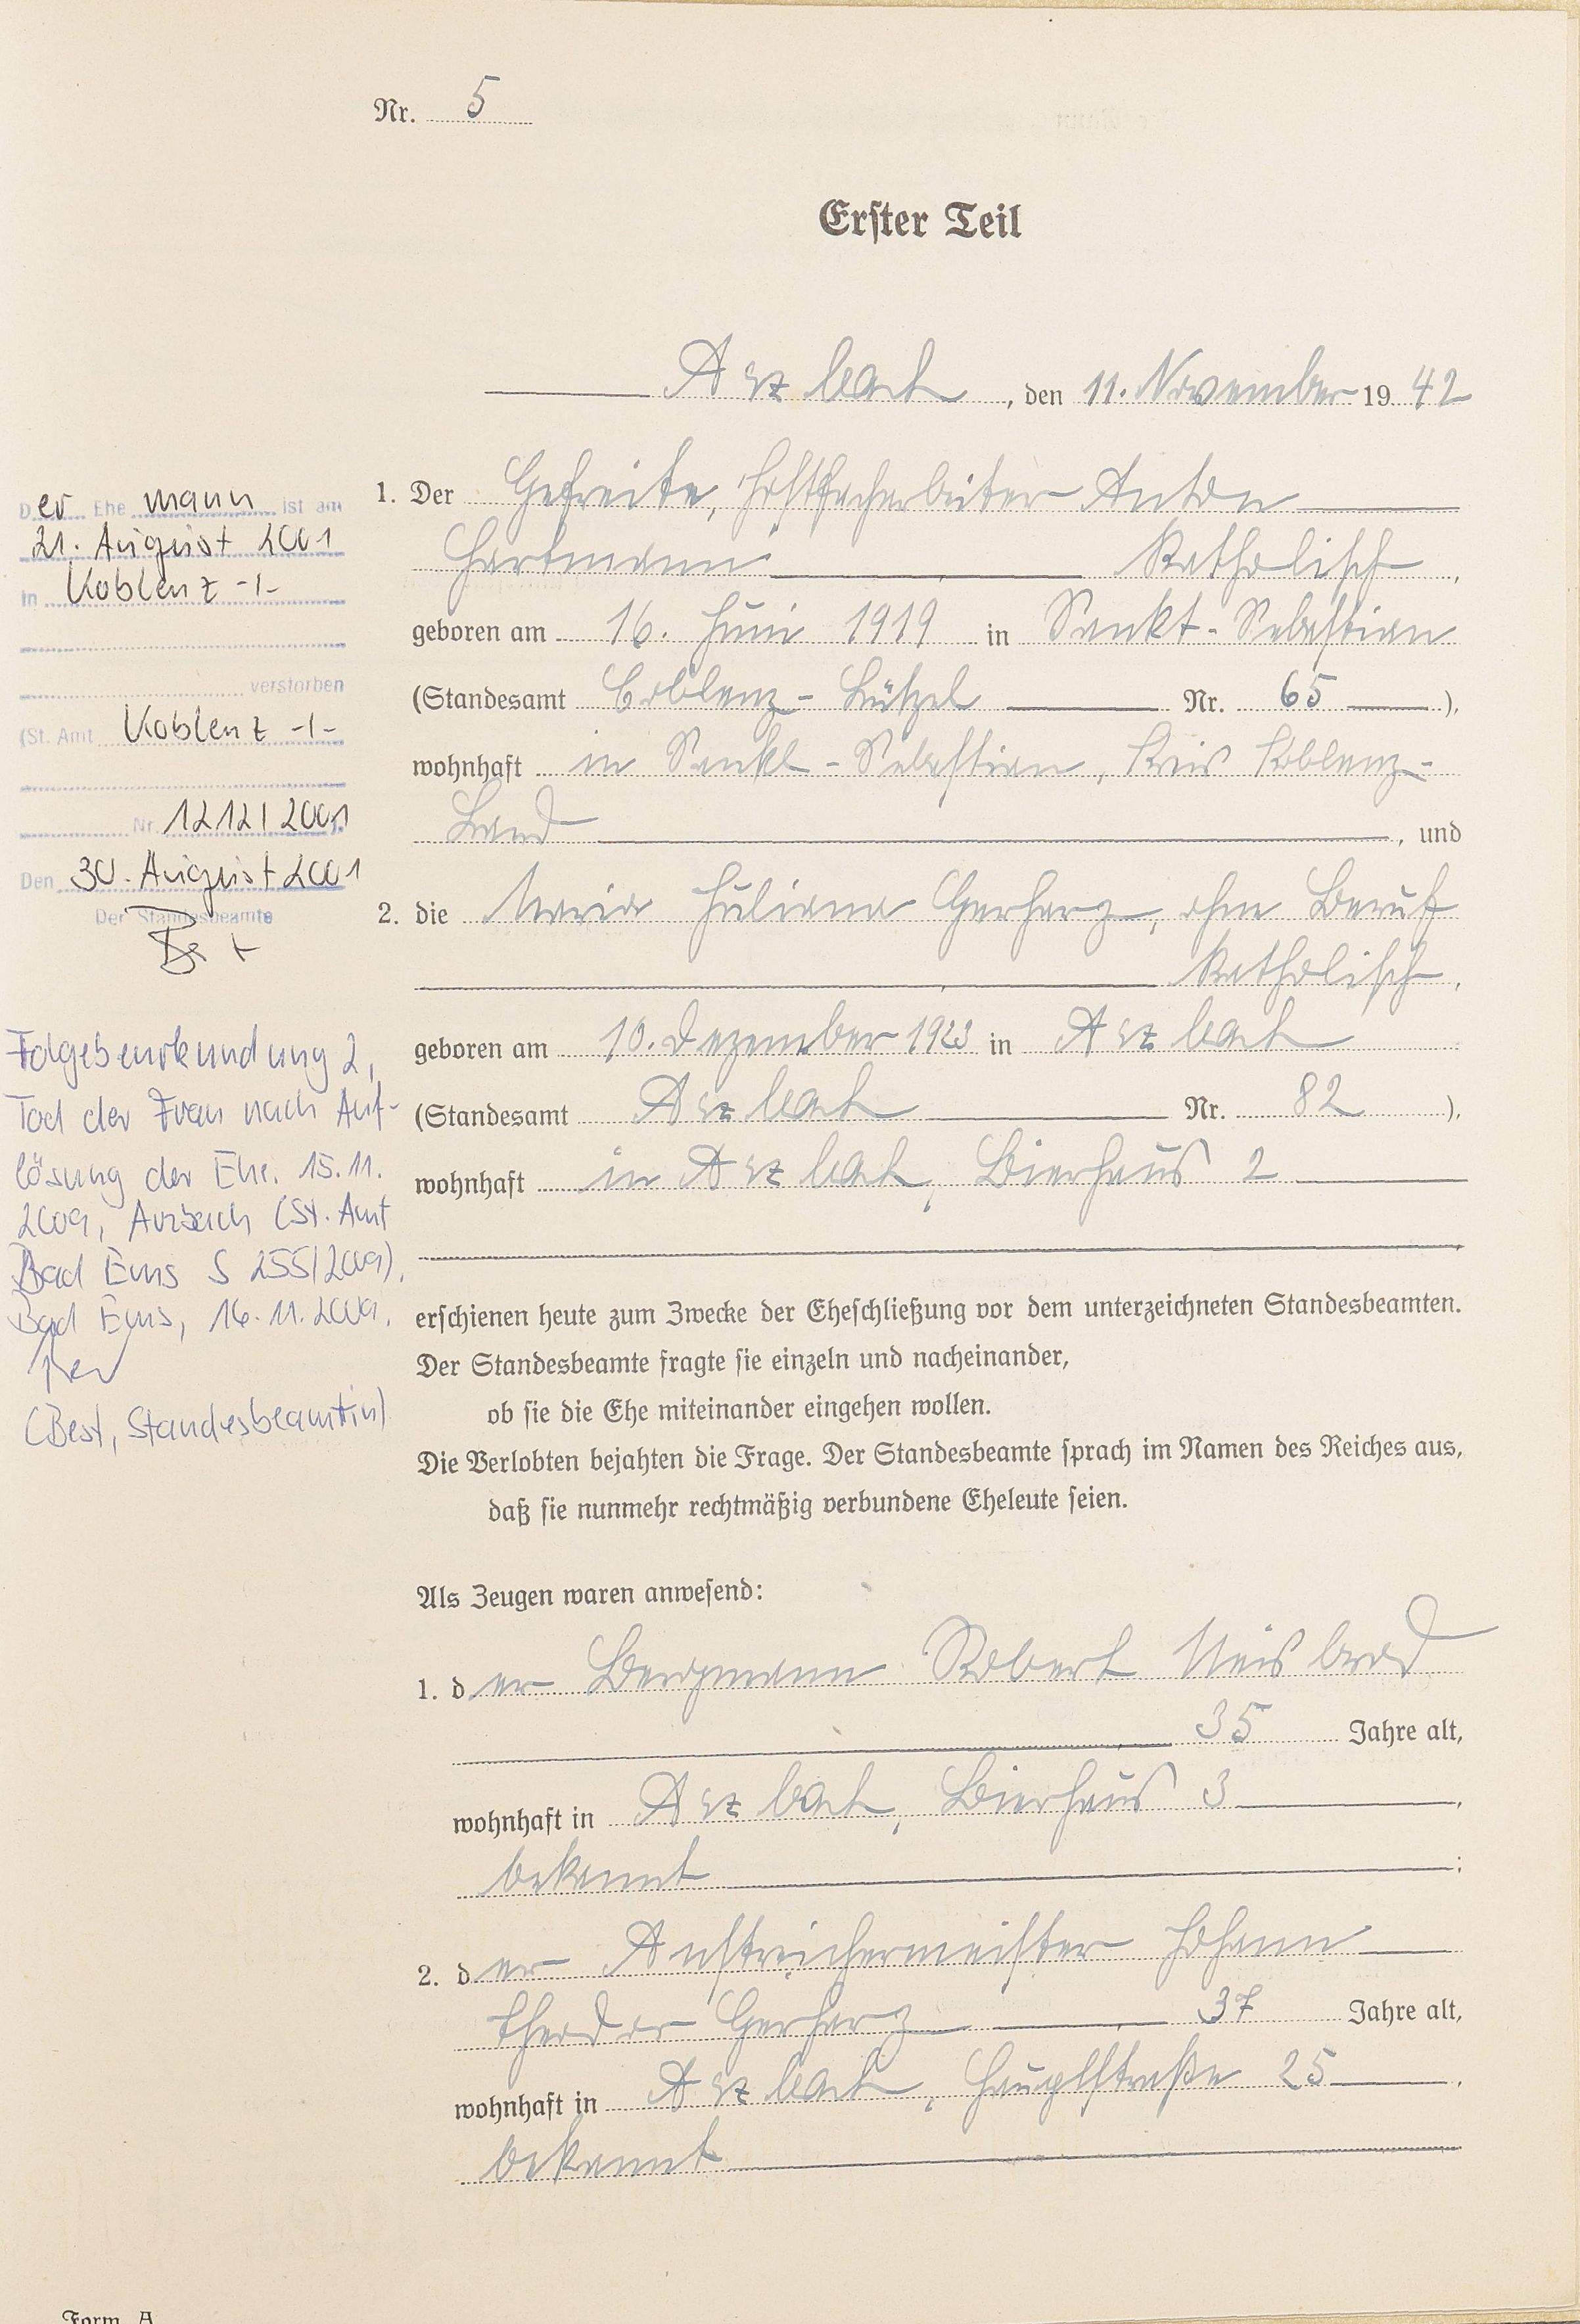 Nr. 5
Erster Teil
Arzbach, den 11. November 1942
1. Der Gefreite, Postfacharbeiter Anton
Hartmann katholisch,
geboren am 16. Juni 1919 in Sankt-Sebastian
(Standesamt Coblenz-Lützel Nr. 65 ),
wohnhaft in Sankt-Sebastian, Kreis Koblenz-
Land, und
2. die Maria Juliana Gerharz, ohne Beruf
katholisch,
geboren am 10. Dezember 1923 in Arzbach
(Standesamt Arzbach Nr. 82 ),
wohnhaft in Arzbach, Bierhaus 2
erschienen heute zum Zwecke der Eheschließung vor dem unterzeichneten Standesbeamten.
Der Standesbeamte fragte sie einzeln und nacheinander,
ob sie die Ehe miteinander eingehen wollen.
Die Verlobten bejahten die Frage. Der Standesbeamte sprach im Namen des Reiches aus,
daß sie nunmehr rechtmäßig verbundene Eheleute seien.
Als Zeugen waren anwesend:
1. der Bergmann Robert Neisbrod
35 Jahre alt,
wohnhaft in Arzbach, Bierhaus 3,
bekannt;
2. der Anstreichermeister Johann
Theodor Gerharz 37 Jahre alt,
wohnhaft in Arzbach, Hauptstraße 25,
bekannt
Form. A
Der Ehe mann ist am
21. August 2001
in Koblenz -/-
verstorben
(St. Amt Koblenz -/-
Nr. 1212/2001).
Den 30. August 2001
Der Standesbeamte
Folgebeurkundung 2,
Tod der Frau nach Auf-
lösung der Ehe. 15.11.
2009, Arzbach (St. Amt
Bad Ems S 255/2009).
Bad Ems, 16.11.2009.
(Best, Standesbeamtin)